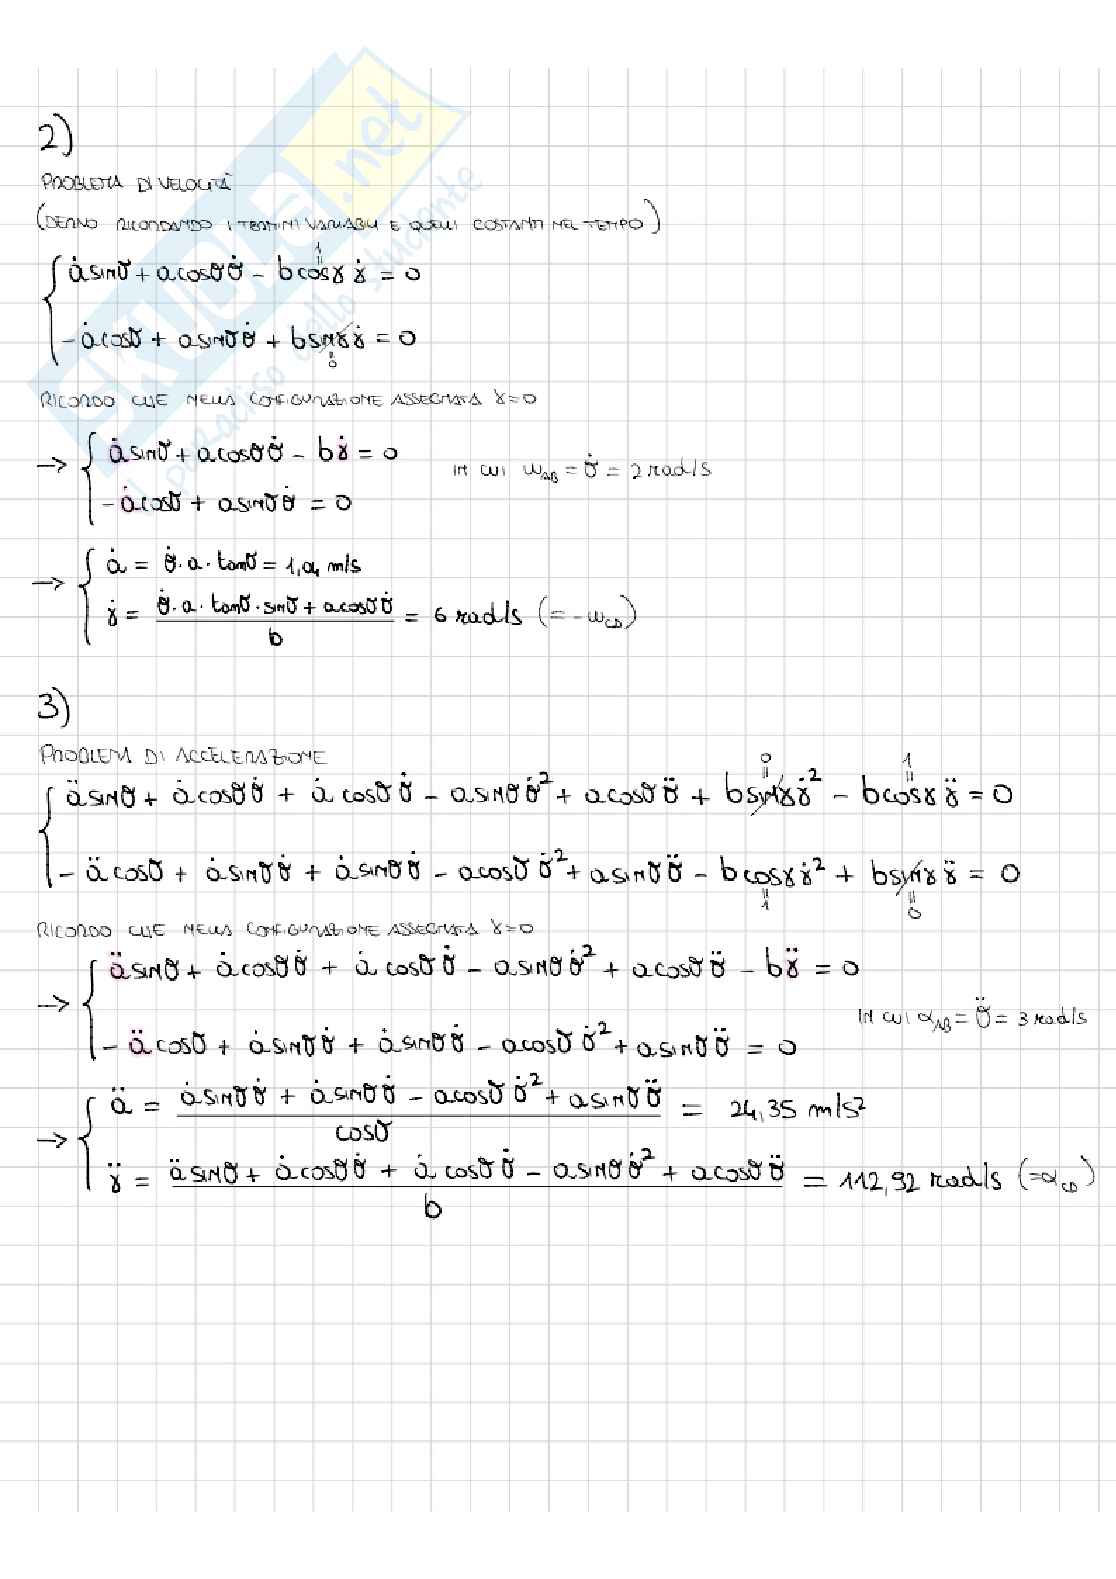 2)
PROBLEMA DI VELOCITÀ
(DERIVO RICORDANDO I TERMINI VARIABILI E QUELLI COSTANTI NEL TEMPO)
ȧ sinϑ + a cosϑ ϑ̇ - b cosγ γ̇ = 0
1
- ȧ cosϑ + a sinϑ ϑ̇ + b sinγ γ̇ = 0
0
RICORDO CHE NELLA CONFIGURAZIONE ASSEGNATA γ=0
→ ȧ sinϑ + a cosϑ ϑ̇ - b γ̇ = 0
- ȧ cosϑ + a sinϑ ϑ̇ = 0
IN CUI ω_AB = ϑ̇ = 2 rad/s
→ ȧ = ϑ̇ · a · tanϑ = 1,04 m/s
γ̇ = (ϑ̇ · a · tanϑ · sinϑ + a cosϑ ϑ̇) / b = 6 rad/s (= -ω_CD)
3)
PROBLEMA DI ACCELERAZIONE
ä sinϑ + ȧ cosϑ ϑ̇ + ȧ cosϑ ϑ̇ - a sinϑ ϑ̇² + a cosϑ ϑ̈ + b sinγ γ̇² - b cosγ γ̈ = 0
0 1
- ä cosϑ + ȧ sinϑ ϑ̇ + ȧ sinϑ ϑ̇ - a cosϑ ϑ̇² + a sinϑ ϑ̈ - b cosγ γ̇² + b sinγ γ̈ = 0
1 0
RICORDO CHE NELLA CONFIGURAZIONE ASSEGNATA γ=0
→ ä sinϑ + ȧ cosϑ ϑ̇ + ȧ cosϑ ϑ̇ - a sinϑ ϑ̇² + a cosϑ ϑ̈ - b γ̈ = 0
IN CUI α_AB = ϑ̈ = 3 rad/s
- ä cosϑ + ȧ sinϑ ϑ̇ + ȧ sinϑ ϑ̇ - a cosϑ ϑ̇² + a sinϑ ϑ̈ = 0
→ ä = (ȧ sinϑ ϑ̇ + ȧ sinϑ ϑ̇ - a cosϑ ϑ̇² + a sinϑ ϑ̈) / cosϑ = 24,35 m/s²
γ̈ = (ä sinϑ + ȧ cosϑ ϑ̇ + ȧ cosϑ ϑ̇ - a sinϑ ϑ̇² + a cosϑ ϑ̈) / b = 112,92 rad/s (=α_CD)
SKUOLA.net
il paradiso dello studente